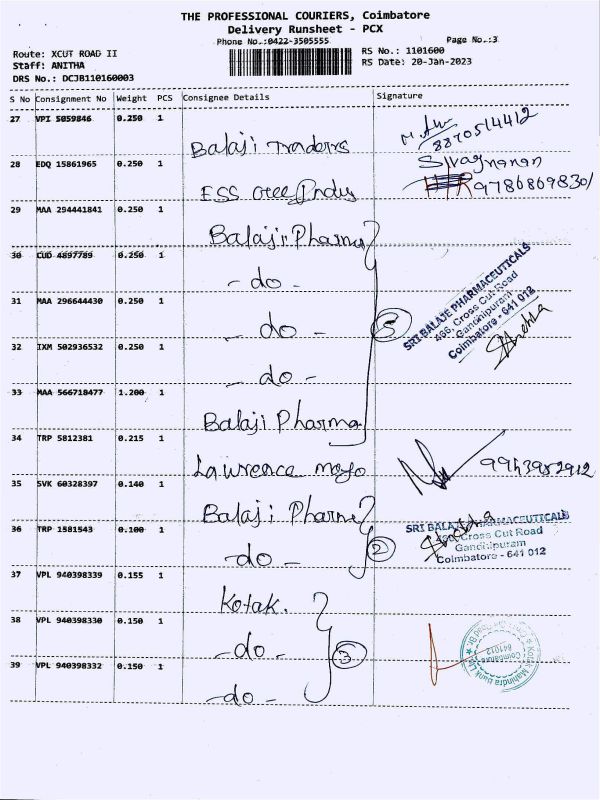 THE PROFESSIONAL COURIERS, Coimbatore
Delivery Runsheet - PCX
Phone No.:0422-3505555 Page No.:3
Route: XCUT ROAD II RS No.: 1101600
Staff: ANITHA RS Date: 20-Jan-2023
DRS No.: DCJB110160003
S No Consignment No Weight PCS Consignee Details Signature
27 VPI 5059846 0.250 1
Balaji Traders 8870514412
28 EDQ 15861965 0.250 1 Sivagnanan
ESS Gee Indus 9786869830/
29 MAA 294441841 0.250 1
Balaji Pharma
30 CUD 4897789 0.250 1
- do -
31 MAA 296644430 0.250 1
- do - 5
SRI BALAJE PHARMACEUTICALS
466, Cross Cut Road
Gandhipuram
Coimbatore - 641 012
32 IXM 502936532 0.250 1
- do -
33 MAA 566718477 1.200 1
Balaji Pharma
34 TRP 5812381 0.215 1
Lawrence mayo 9943982912
35 SVK 60328397 0.140 1
Balaji Pharma
36 TRP 1581543 0.100 1
- do - 2
SRI BALAJE PHARMACEUTICALS
466, Cross Cut Road
Gandhipuram
Coimbatore - 641 012
37 VPL 940398339 0.155 1
Kotak.
38 VPL 940398330 0.150 1
- do - 3
39 VPL 940398332 0.150 1
- do -
Kotak Mahindra Bank Ltd
Coimbatore
641012